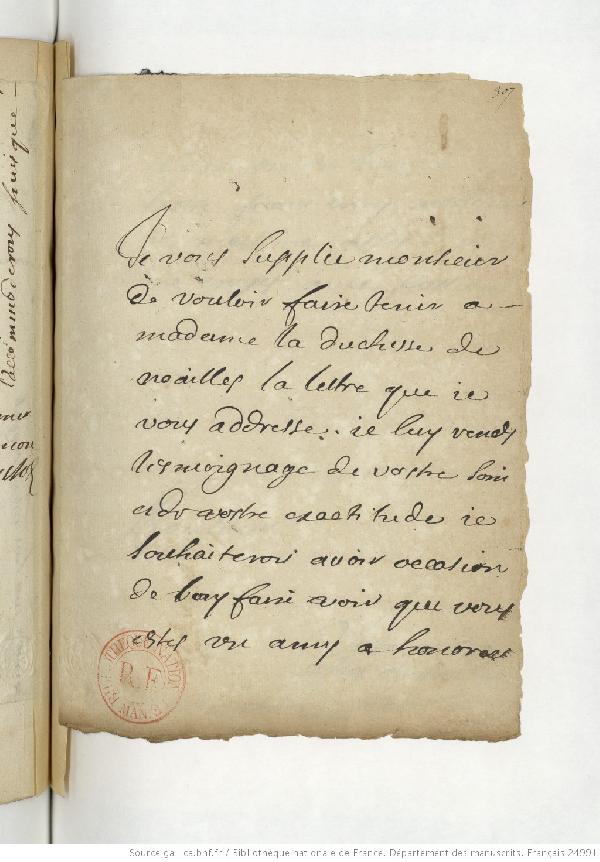 307
Je vous supplie monsieur
de vouloir faire tenir a
madame la duchesse de
noailles la lettre que ie
vous addresse. ie luy rends
tesmoignage de vostre soin
et de vostre exactitude ie
souhaiterois avoir occasion
de luy faire voir que vous
estes un amy a honorer
BIBLIOTHEQUE NATIONALE
R.F
MAN.
l'accommoderons puis que
Source gallica.bnf.fr / Bibliothèque nationale de France. Département des manuscrits. Français 24991